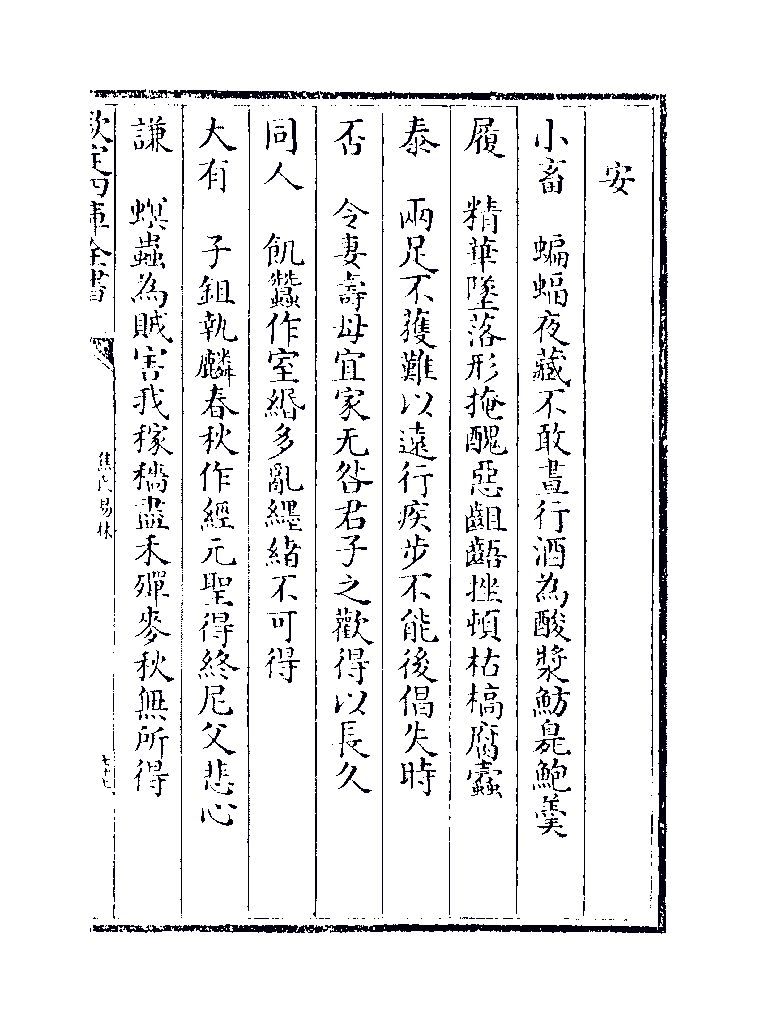 安
小畜　蝙蝠夜藏不敢晝行酒為酸漿魴臭鮑羮
履　精華墜落形掩醜惡齟齬挫頓枯槁腐蠹
泰　兩足不獲難以遠行疾步不能後倡失時
否　令妻壽母宜家无咎君子之歡得以長久
同人　飢蠶作室緡多亂纒緒不可得
大有　子鉏執麟春秋作經元聖得終尼父悲心
謙　螟蟲為賊害我稼穡盡禾殫麥秋無所得
欽定四庫全書
焦氏易林
七十九